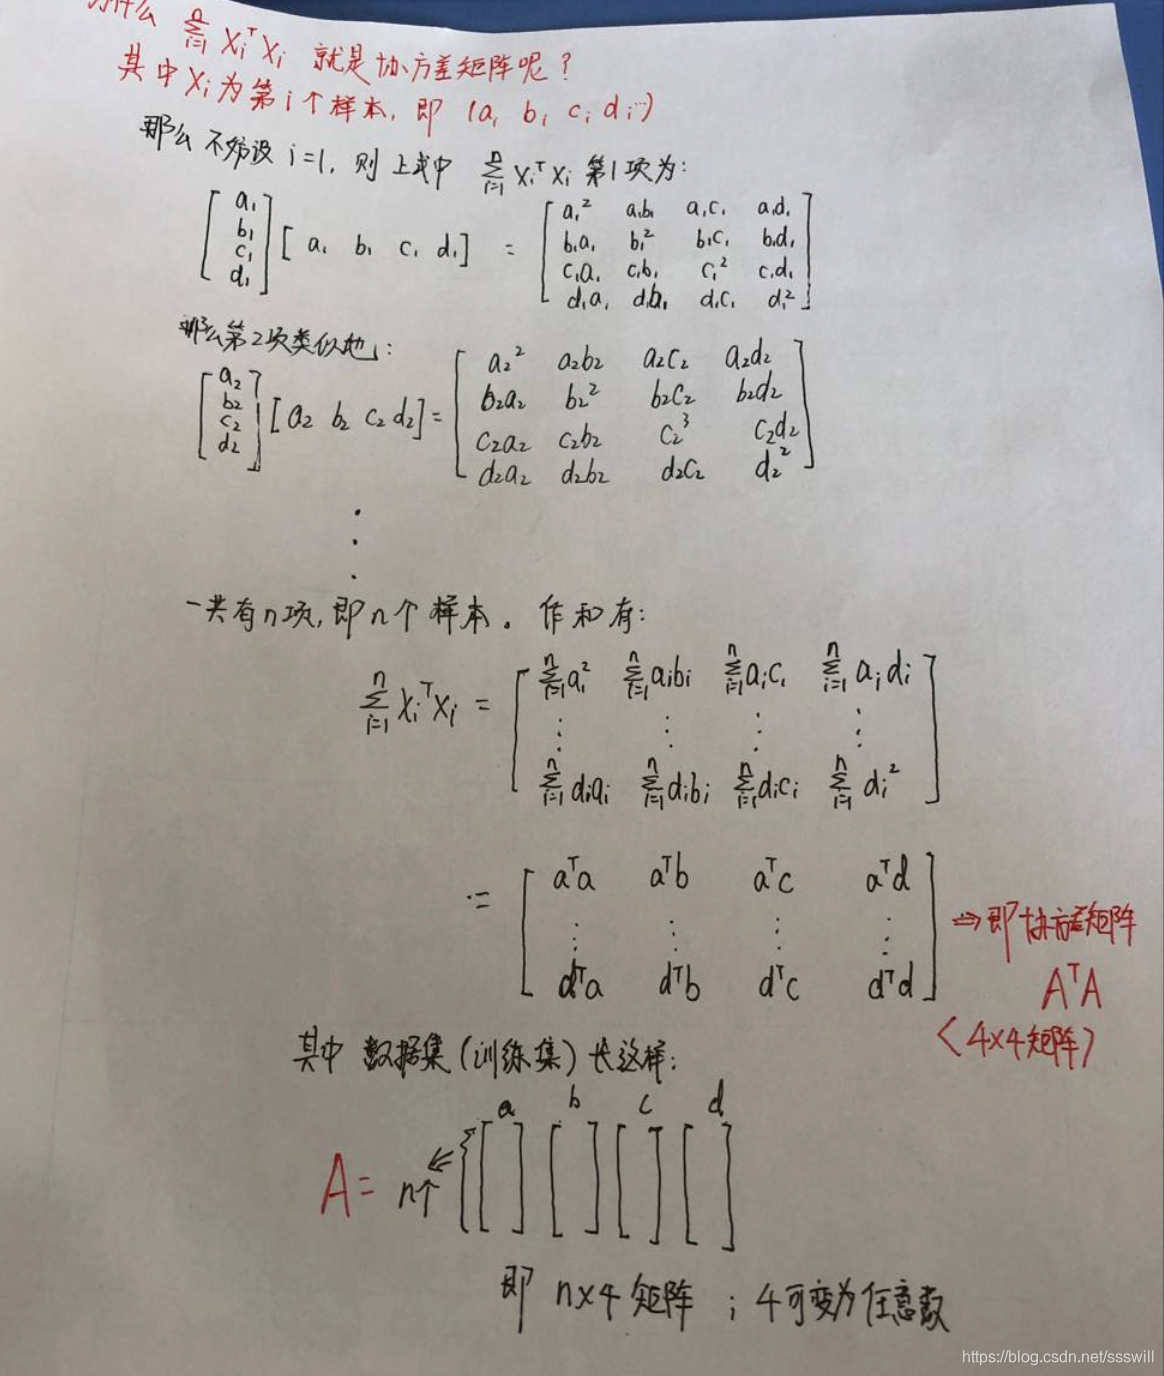 为什么 $\sum_{i=1}^{n} X_i^T X_i$ 就是协方差矩阵呢？
其中 $X_i$ 为第 i 个样本, 即 $(a_i\ b_i\ c_i\ d_i \cdots)$
那么不妨设 i=1, 则上式中 $\sum_{i=1}^{n} X_i^T X_i$ 第1项为:
$\begin{bmatrix} a_1 \\ b_1 \\ c_1 \\ d_1 \end{bmatrix} [a_1\ b_1\ c_1\ d_1] = \begin{bmatrix} a_1^2 & a_1b_1 & a_1c_1 & a_1d_1 \\ b_1a_1 & b_1^2 & b_1c_1 & b_1d_1 \\ c_1a_1 & c_1b_1 & c_1^2 & c_1d_1 \\ d_1a_1 & d_1b_1 & d_1c_1 & d_1^2 \end{bmatrix}$
那么第2项类似地:
$\begin{bmatrix} a_2 \\ b_2 \\ c_2 \\ d_2 \end{bmatrix} [a_2\ b_2\ c_2\ d_2] = \begin{bmatrix} a_2^2 & a_2b_2 & a_2c_2 & a_2d_2 \\ b_2a_2 & b_2^2 & b_2c_2 & b_2d_2 \\ c_2a_2 & c_2b_2 & c_2^3 & c_2d_2 \\ d_2a_2 & d_2b_2 & d_2c_2 & d_2^2 \end{bmatrix}$
⋮
一共有n项, 即n个样本。作和有:
$\sum_{i=1}^{n} X_i^T X_i = \begin{bmatrix} \sum_{i=1}^{n} a_i^2 & \sum_{i=1}^{n} a_ib_i & \sum_{i=1}^{n} a_ic_i & \sum_{i=1}^{n} a_id_i \\ \vdots & \vdots & \vdots & \vdots \\ \sum_{i=1}^{n} d_ia_i & \sum_{i=1}^{n} d_ib_i & \sum_{i=1}^{n} d_ic_i & \sum_{i=1}^{n} d_i^2 \end{bmatrix}$
$:= \begin{bmatrix} a^Ta & a^Tb & a^Tc & a^Td \\ \vdots & \vdots & \vdots & \vdots \\ d^Ta & d^Tb & d^Tc & d^Td \end{bmatrix}$ ⇒ 即协方差矩阵
$A^TA$
(4×4矩阵)
其中 数据集(训练集)长这样:
a b c d
A= n个 { [ ] [ ] [ ] [ ]
即 n×4 矩阵 ; 4可变为任意数
https://blog.csdn.net/ssswill